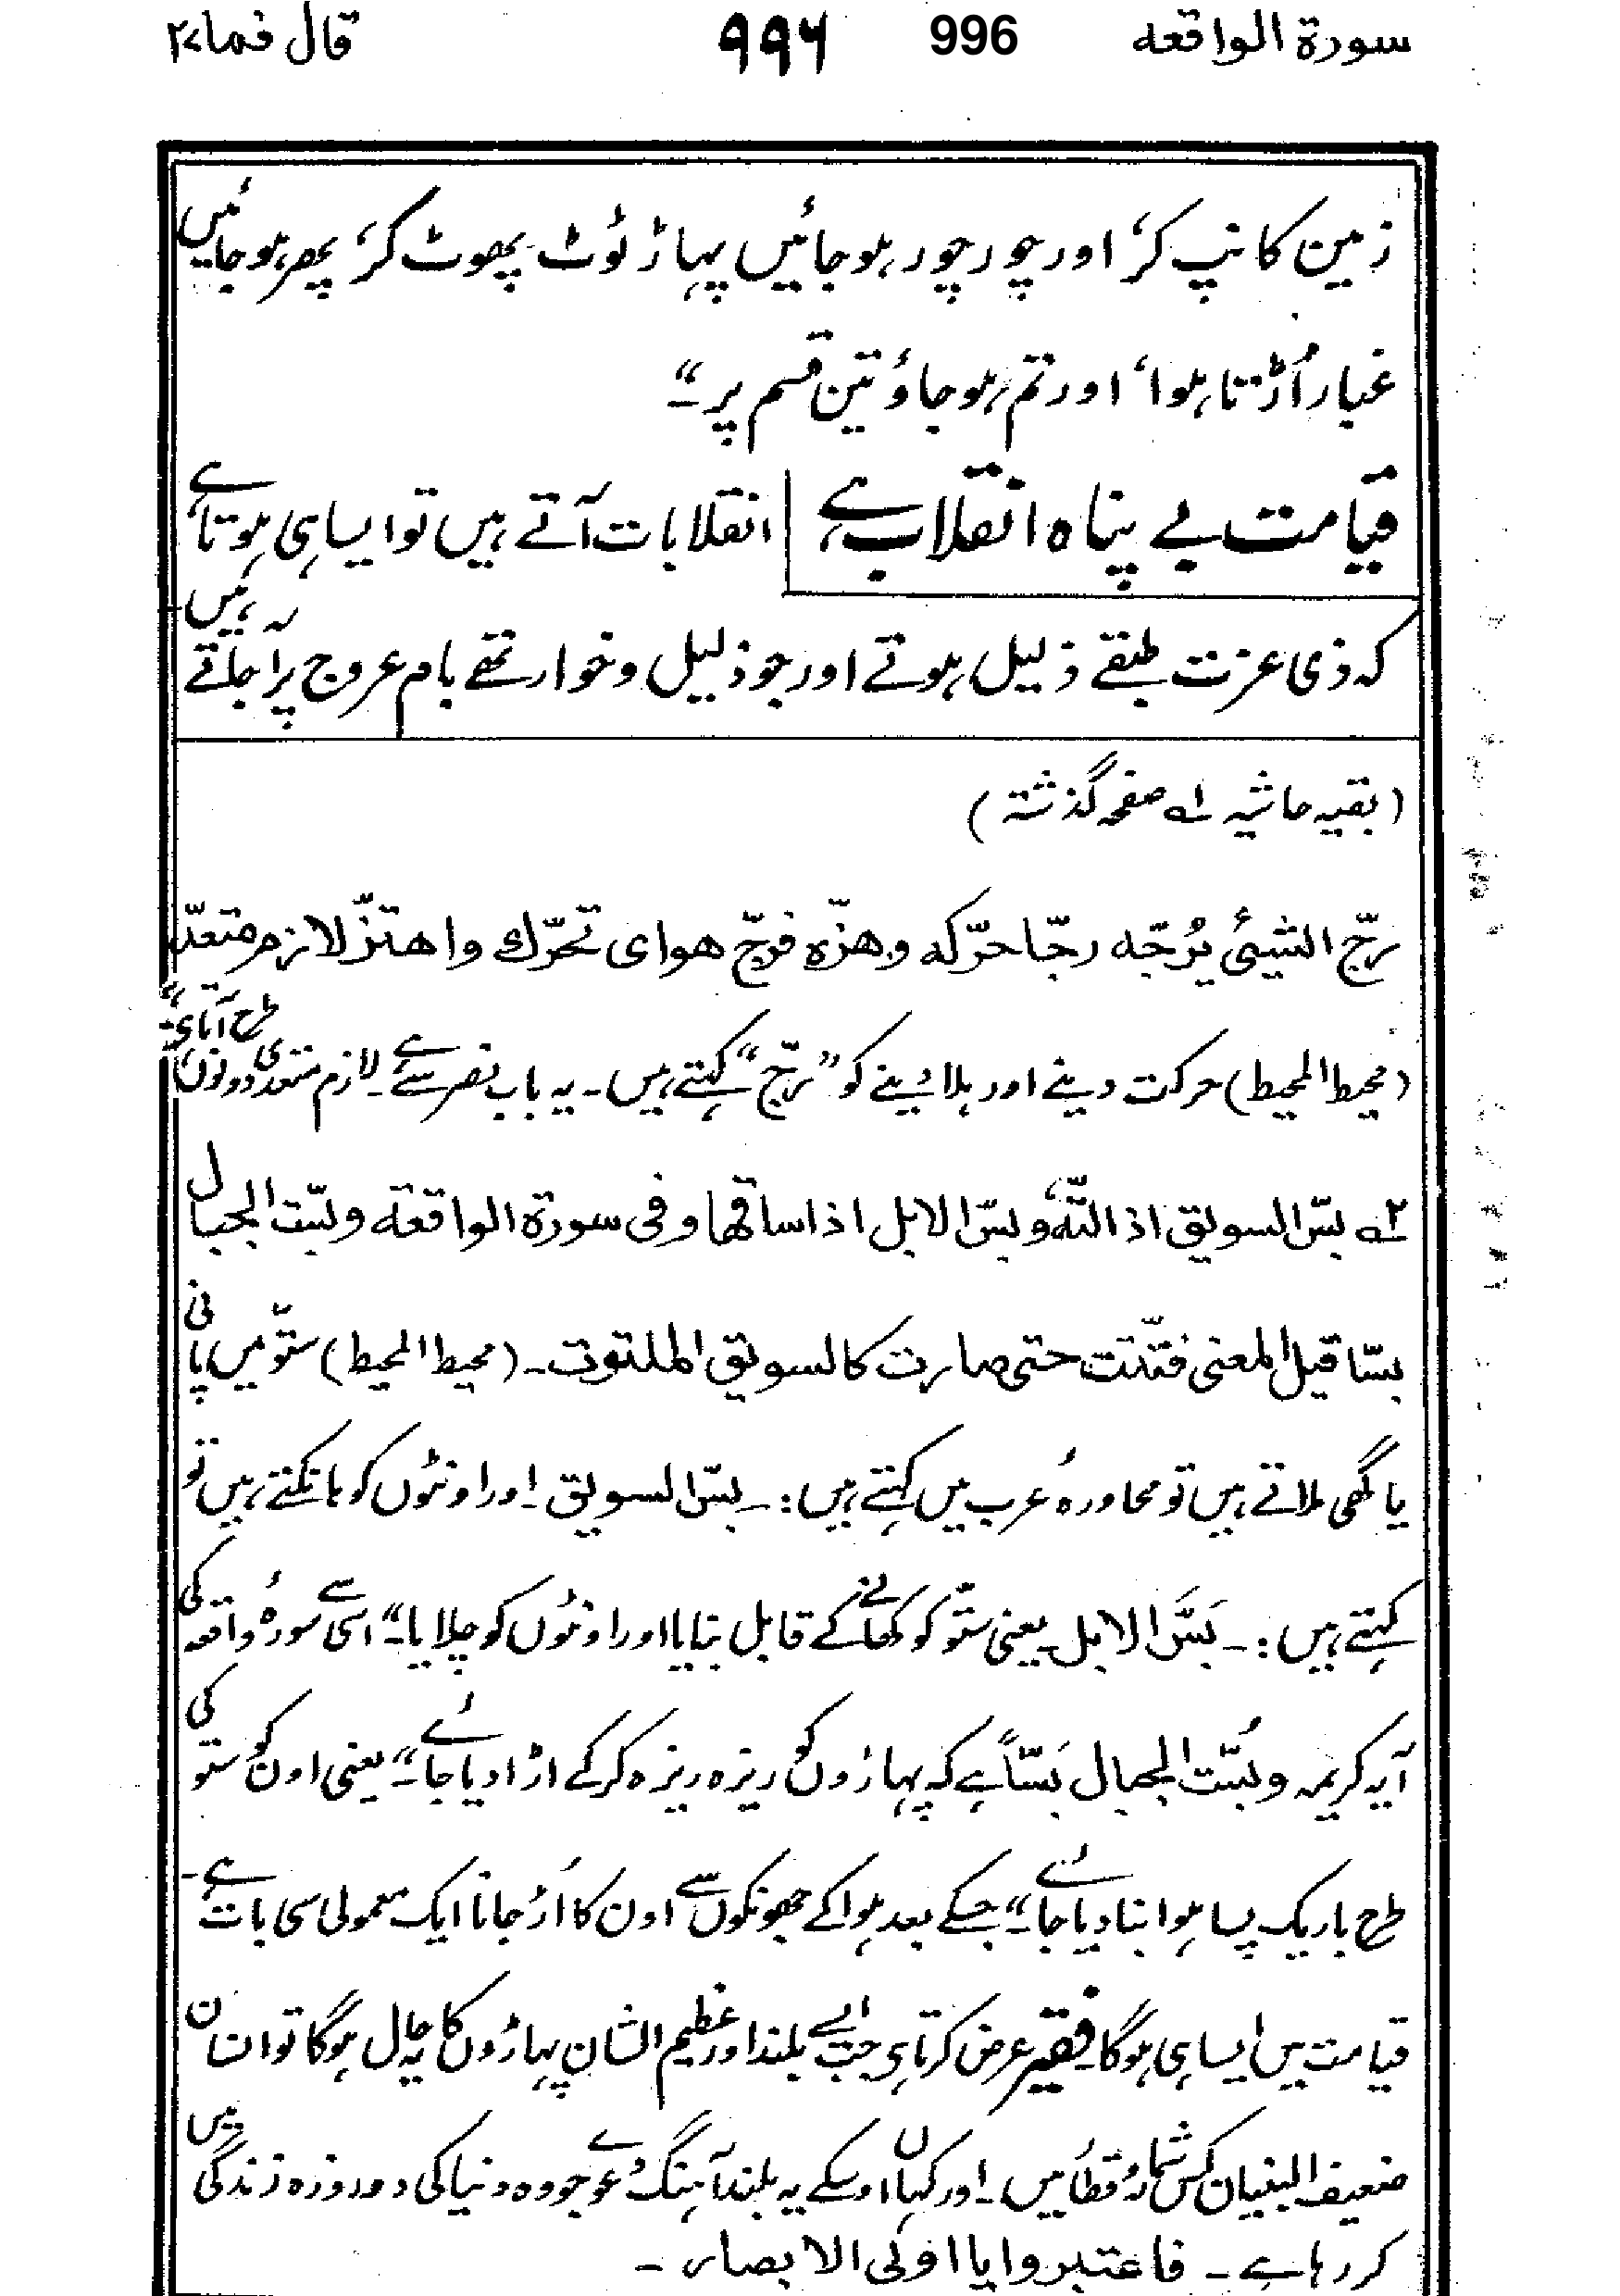 سورة الواقعه 996 ۹۹۶ قال فما ۲۷
زمین کانپ کر، اور چور چور ہوجائیں پہاڑ ٹوٹ پھوٹ کر، پھر ہوجائیں
غبار اُڑتا ہوا، اور تم ہوجاؤ تین قسم پر۔“
قیامت بے پناہ انقلاب ہے انقلابات آتے ہیں تو ایسا ہی ہوتا ہے،
کہ ذی عزت طبقے ذلیل ہوتے اور جو ذلیل و خوار تھے بام عروج پر آجاتے ہیں۔
(بقیہ حاشیہ ۱؎ صفحہ گذشتہ)
رجّ الشیئ یُرجّه رجّا حرّکه وهزّه فرجّ هوای تحرّك واهتزّ لازم متعدّ
(محیط المحیط) حرکت دینے اور ہلا دینے کو ”رجّ“ کہتے ہیں۔ یہ باب نصر سے ہے۔ لازم متعدی دونوں طرح آتا ہے۔“
۲؎ بسّ السویق اذا لتّهٗ وبسّ الابل اذا ساقها وفی سورة الواقعة وبسّت الجبال
بسّا قیل المعنی فتّتت حتی صارت کالسویق الملتوت۔ (محیط المحیط) ستّو میں پانی
یا گھی ملاتے ہیں تو محاورۂ عرب میں کہتے ہیں:۔ بسّ السویق۔ اور اونٹوں کو ہانکتے ہیں تو
کہتے ہیں:۔ بَسَّ الابل۔ یعنی ستّو کو کھانے کے قابل بنایا اور اونٹوں کو چلایا۔“ اسی سے سورۂ واقعہ کی
آیہ کریمہ وبُسّت الجبال بَسّاً ہے کہ پہاڑوں کو ریزہ ریزہ کرکے اڑا دیا جائے۔“ یعنی اون کو ستو کی
طرح باریک پسا ہوا بنا دیا جائے۔“ جسکے بعد ہوا کے جھونکوں سے اون کا اُڑ جانا ایک معمولی سی بات ہے۔
قیامت میں ایسا ہی ہوگا۔ فقیر عرض کرتا ہی جب ایسے بلند اور عظیم الشان پہاڑوں کا یہ حال ہوگا تو انسان
ضعیف البنیان کس شمار و قطار میں۔ اور کہاں اوسکے یہ بلند آہنگ دعوے جو وہ دنیا کی دو روزہ زندگی میں
کر رہا ہے۔ فاعتبروا یا اولی الابصار۔